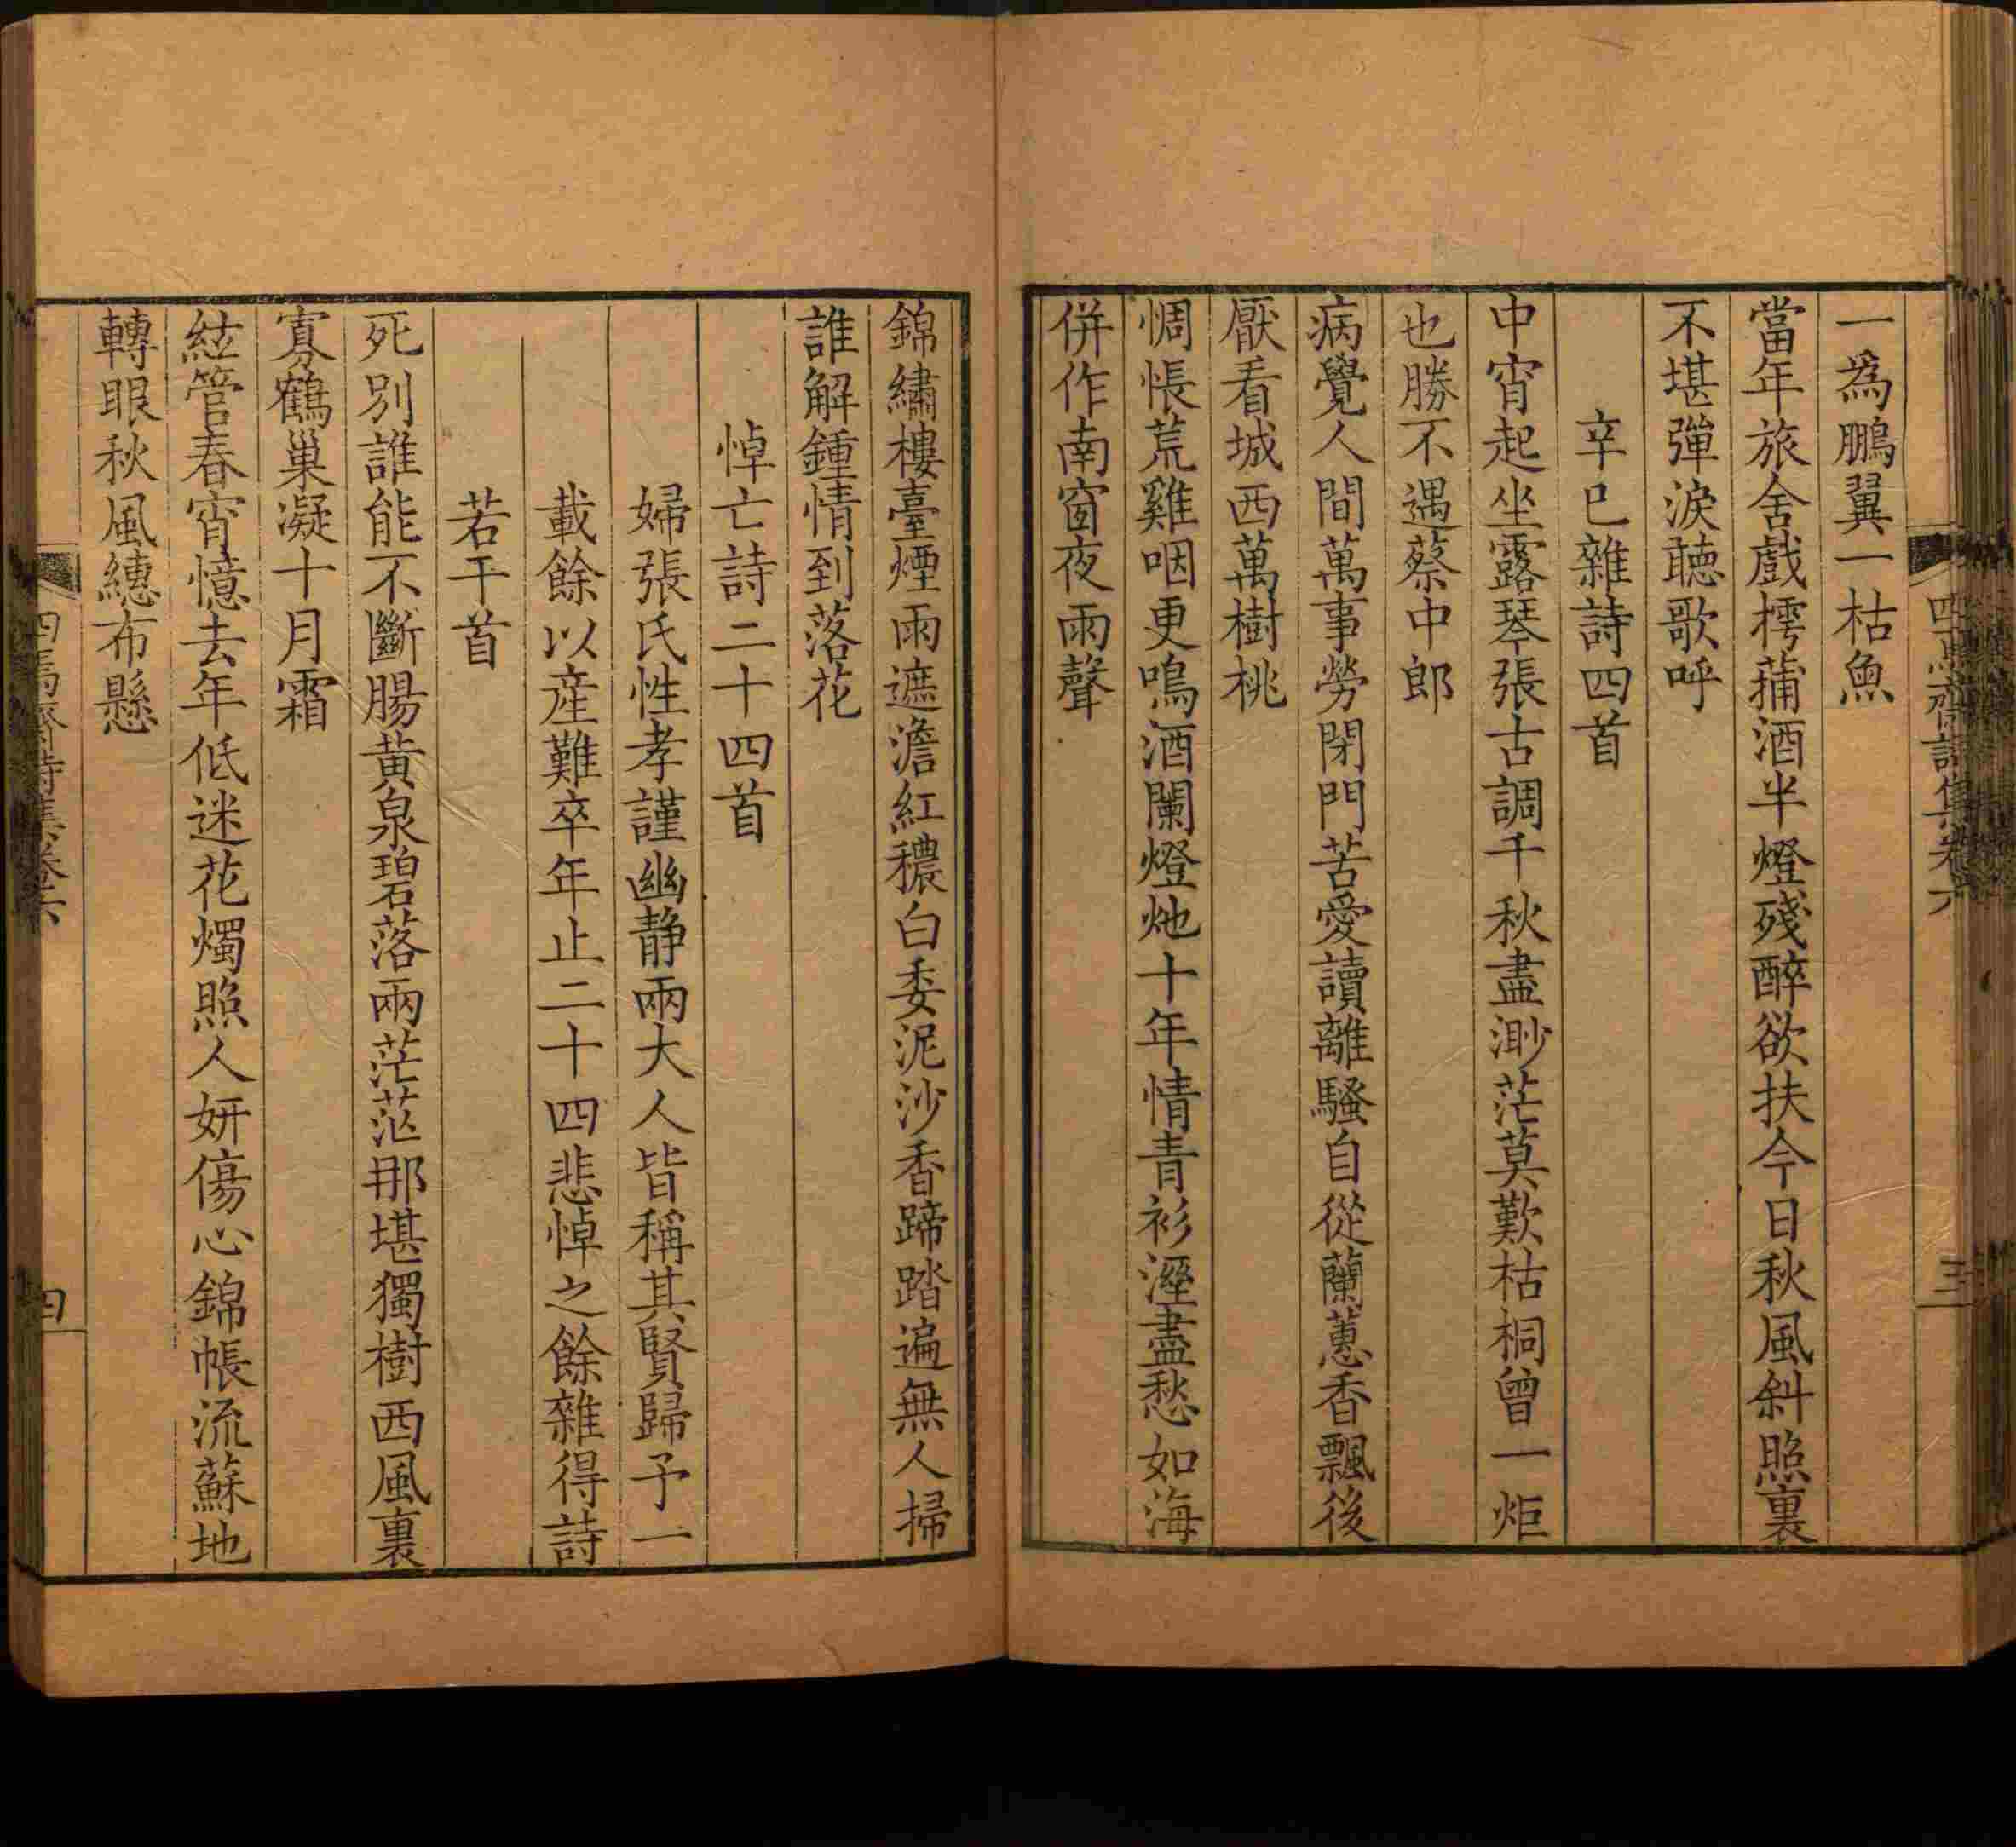 一爲鵬翼一枯魚
當年旅舍戲樗蒱酒半燈殘醉欲扶今日秋風斜照裏
不堪彈淚聽歌呼
辛巳雜詩四首
中宵起坐露琴張古調千秋盡渺茫莫歎枯桐曾一炬
也勝不遇蔡中郎
病覺人間萬事勞閉門苦愛讀離騷自從蘭蕙香飄後
厭看城西萬樹桃
惆悵荒雞咽更鳴酒闌燈灺十年情青衫溼盡愁如海
併作南窗夜雨聲
錦繡樓臺煙雨遮澹紅穠白委泥沙香蹄踏遍無人掃
誰解鍾情到落花
悼亡詩二十四首
婦張氏性孝謹幽静兩大人皆稱其賢歸予一
載餘以産難卒年止二十四悲悼之餘雜得詩
若干首
死別誰能不斷腸黄泉碧落兩茫茫那堪獨樹西風裏
寡鶴巢凝十月霜
絃管春宵憶去年低迷花燭照人妍傷心錦帳流蘇地
轉眼秋風繐布懸